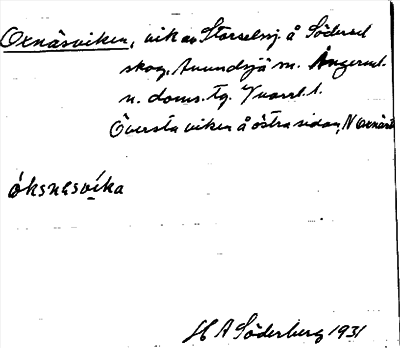 Oxnäsviken, vik av Storselsj. å Södersel
skog, Anundsjö sn. Ångerml.
n. doms. tg. Y norrl. l.
Översta viken å östra sidan, N Oxnäset
óksnesvíka
H A Söderberg 1931